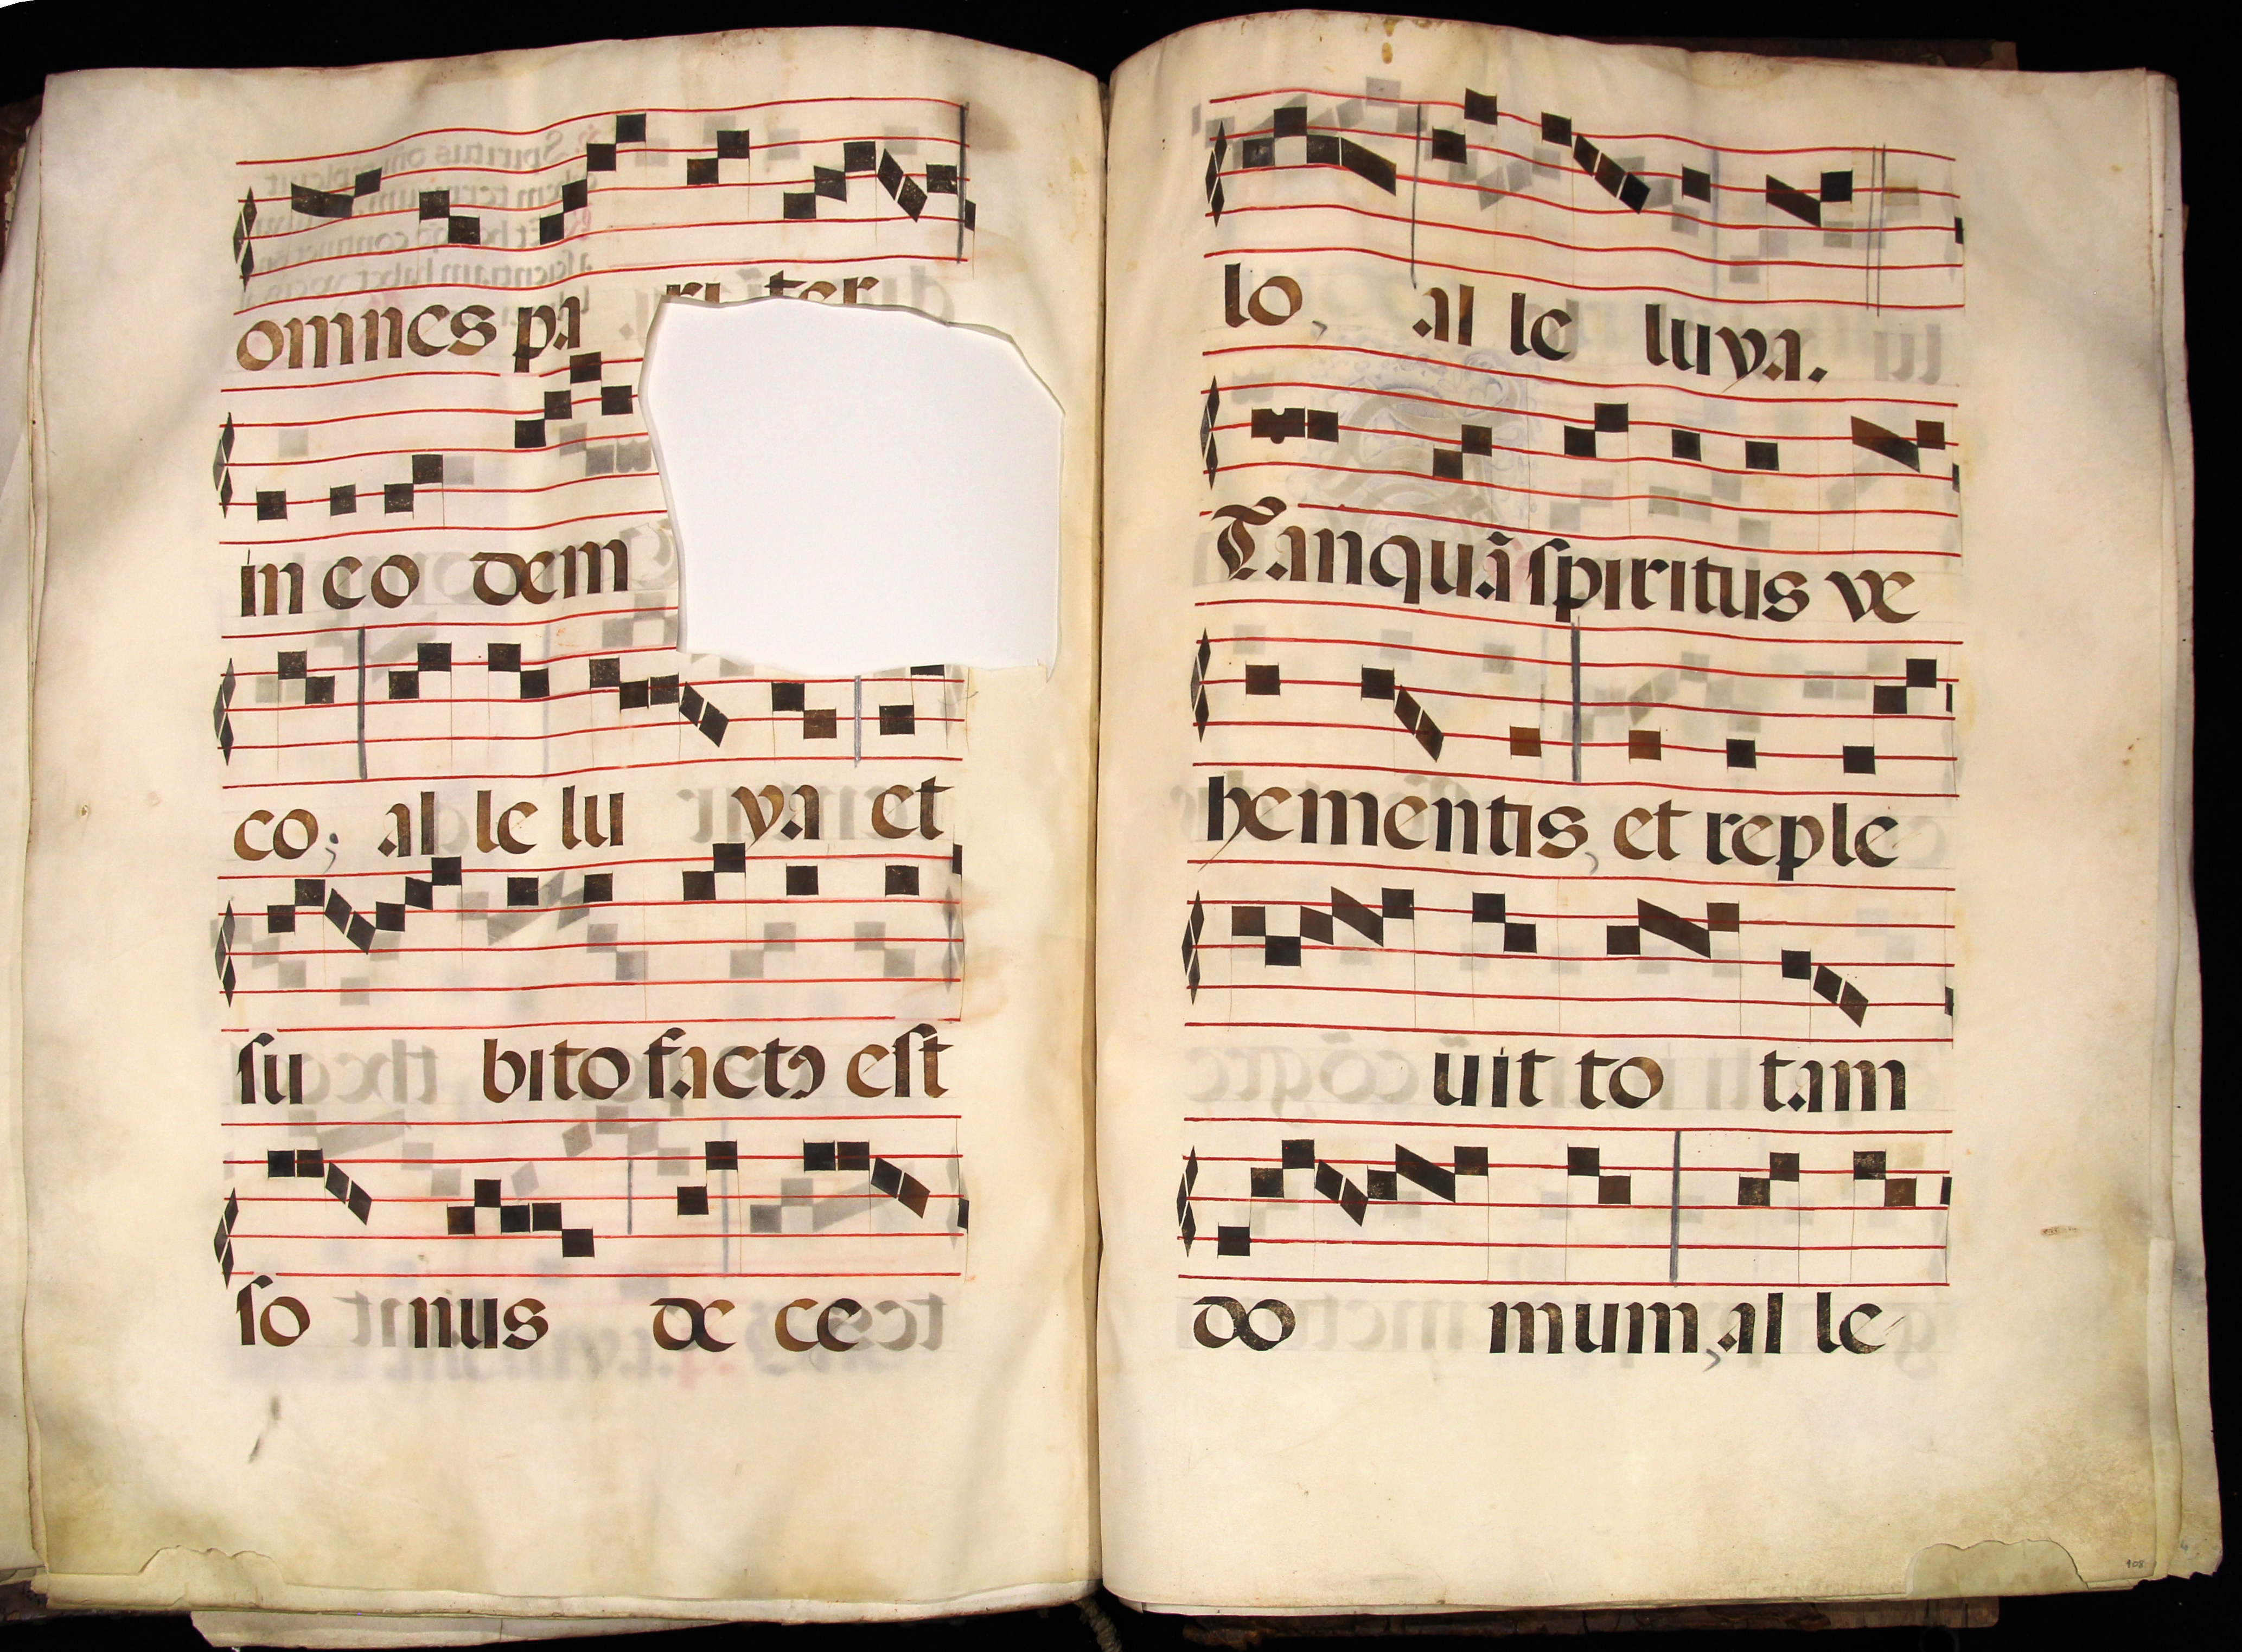 omnes pa riter
in eo dem
co; al le lu ya et
su bito factꝰ est
so nus de ce
lo, al le luya.
Tanquã spiritus ve
hementis, et reple
uit to tam
do mum, al le
108